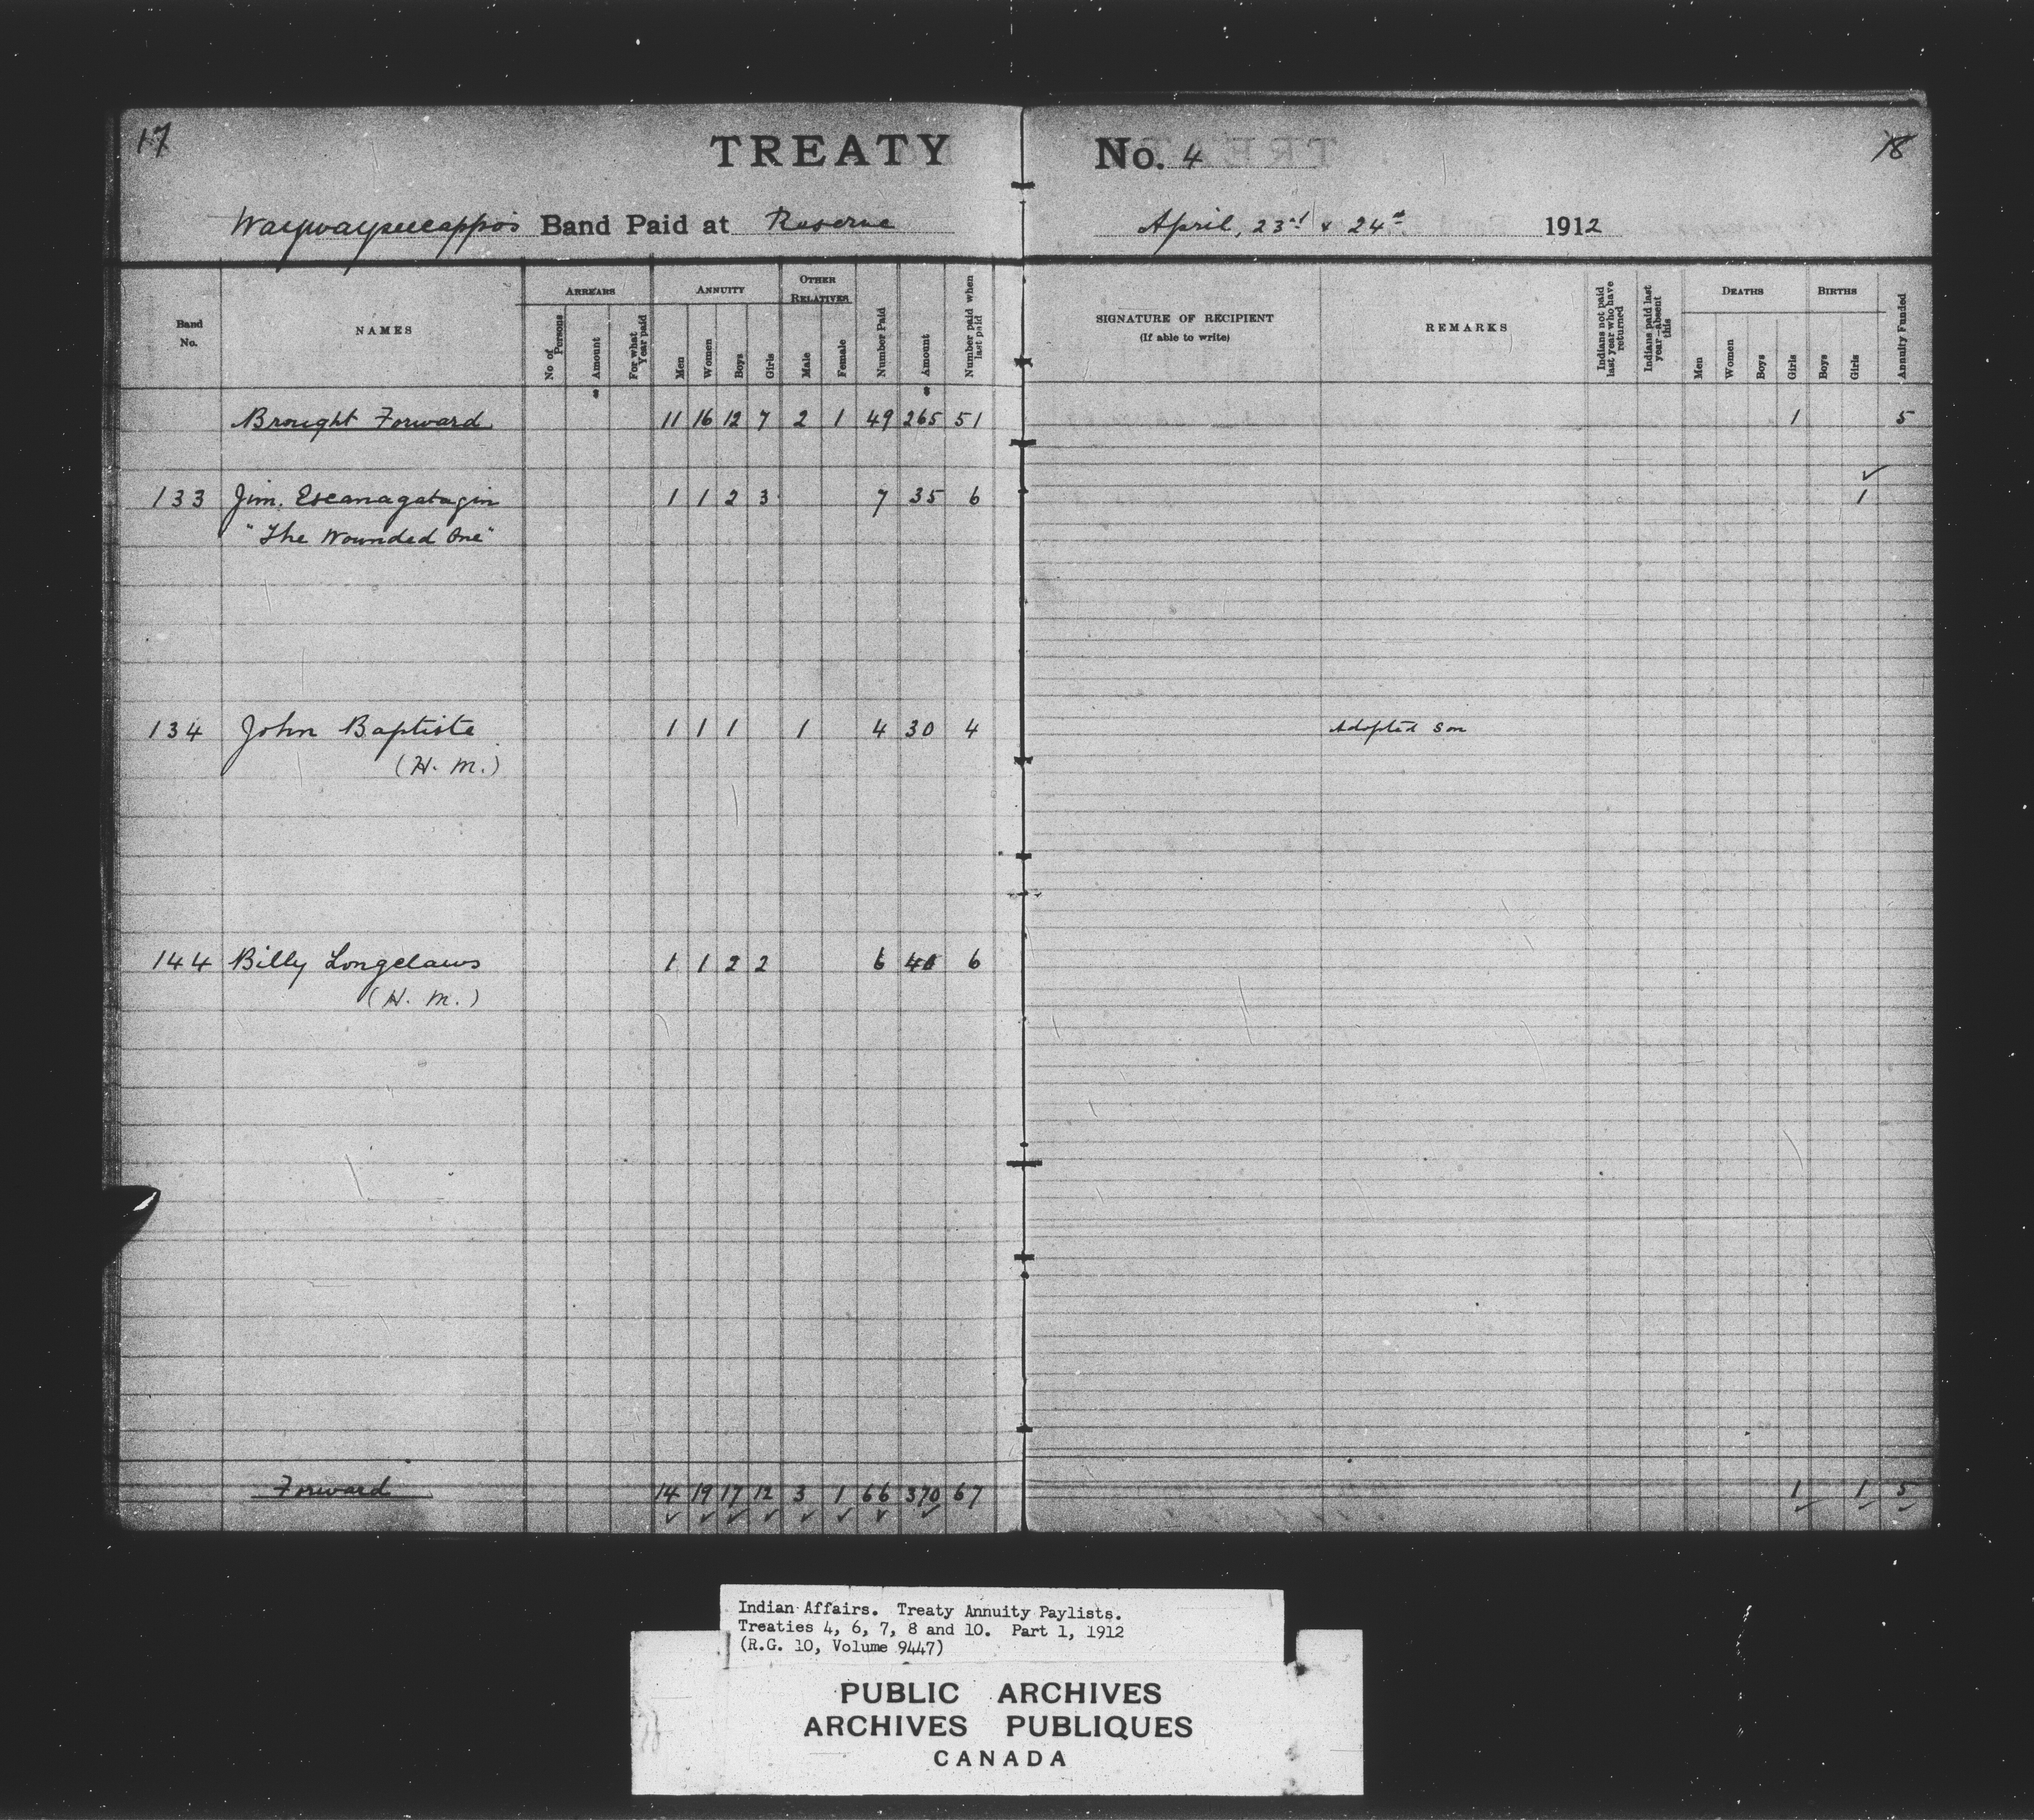 17
TREATY No. 4
18
Waywayseecappo's Band Paid at Reserve
April, 23rd & 24th 1912
Band No. NAMES ARREARS No of Persons Amount For what Year paid ANNUITY Men Women Boys Girls OTHER RELATIVES Male Female Number Paid Amount Number paid when last paid
SIGNATURE OF RECIPIENT (If able to write) REMARKS Indians not paid last year who have returned Indians paid last year—absent this DEATHS Men Women Boys Girls BIRTHS Boys Girls Annuity Funded
$ $
Brought Forward 11 16 12 7 2 1 49 265 51 1 5
133 Jim. Escanagatagin 1 1 2 3 7 35 6 1
"The Wounded One"
134 John Baptiste 1 1 1 1 4 30 4 Adopted Son
(H. M.)
144 Billy Longclaws 1 1 2 2 6 40 6
(H. M.)
Forward 14 19 17 12 3 1 66 370 67 1 1 5
Indian Affairs. Treaty Annuity Paylists.
Treaties 4, 6, 7, 8 and 10. Part 1, 1912
(R.G. 10, Volume 9447)
PUBLIC ARCHIVES
ARCHIVES PUBLIQUES
CANADA